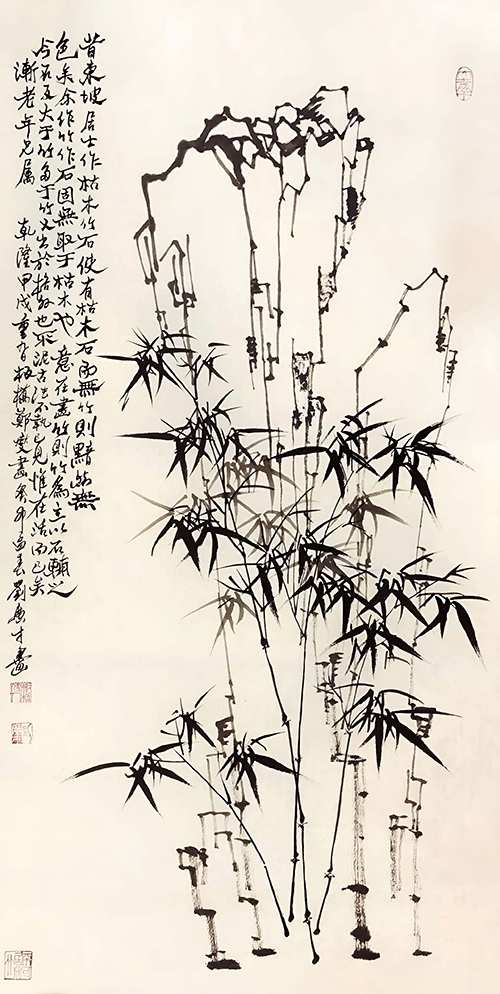 昔東坡居士作枯木竹石使有枯木石而無竹則黯然無
色矣余作竹作石固無取于枯木也意在畫竹則竹為主以石輔之
今石反大于竹多于竹又出於格外也不泥古法不執己見惟在活而已矣
漸老年兄屬 乾隆甲戌重九板橋鄭燮畫 春劉 才畫